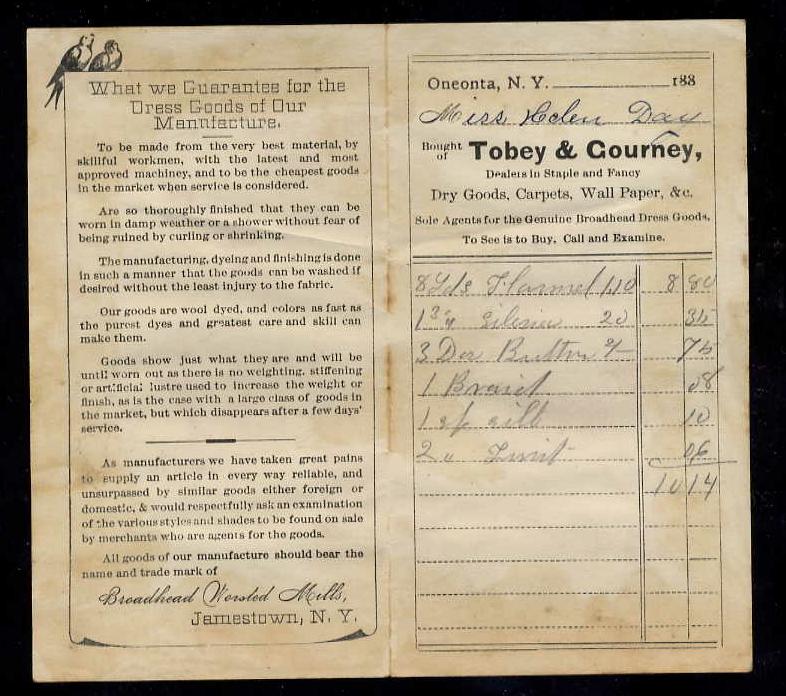 What we Guarantee for the
Dress Goods of Our
Manufacture.
To be made from the very best material, by
skillful workmen, with the latest and most
approved machiney, and to be the cheapest goods
in the market when service is considered.
Are so thoroughly finished that they can be
worn in damp weather or a shower without fear of
being ruined by curling or shrinking.
The manufacturing, dyeing and finishing is done
in such a manner that the goods can be washed if
desired without the least injury to the fabric.
Our goods are wool dyed, and colors as fast as
the purest dyes and greatest care and skill can
make them.
Goods show just what they are and will be
until worn out as there is no weighting, stiffening
or artificial lustre used to increase the weight or
finish, as is the case with a large class of goods in
the market, but which disappears after a few days'
service.
As manufacturers we have taken great pains
to supply an article in every way reliable, and
unsurpassed by similar goods either foreign or
domestic, & would respectfully ask an examination
of the various styles and shades to be found on sale
by merchants who are agents for the goods.
All goods of our manufacture should bear the
name and trade mark of
Broadhead Worsted Mills,
Jamestown, N. Y.
Oneonta, N. Y. 188
Miss Helen Day
Bought of Tobey & Gourney,
Dealers in Staple and Fancy
Dry Goods, Carpets, Wall Paper, &c.
Sole Agents for the Genuine Broadhead Dress Goods.
To See is to Buy. Call and Examine.
8 Yds Flannel 1.10 8 80
1 3/4 " Silesia 20 35
3 Doz Button 2/- 75
1 Braid 08
1 sp silk 10
2 " 06
10 14